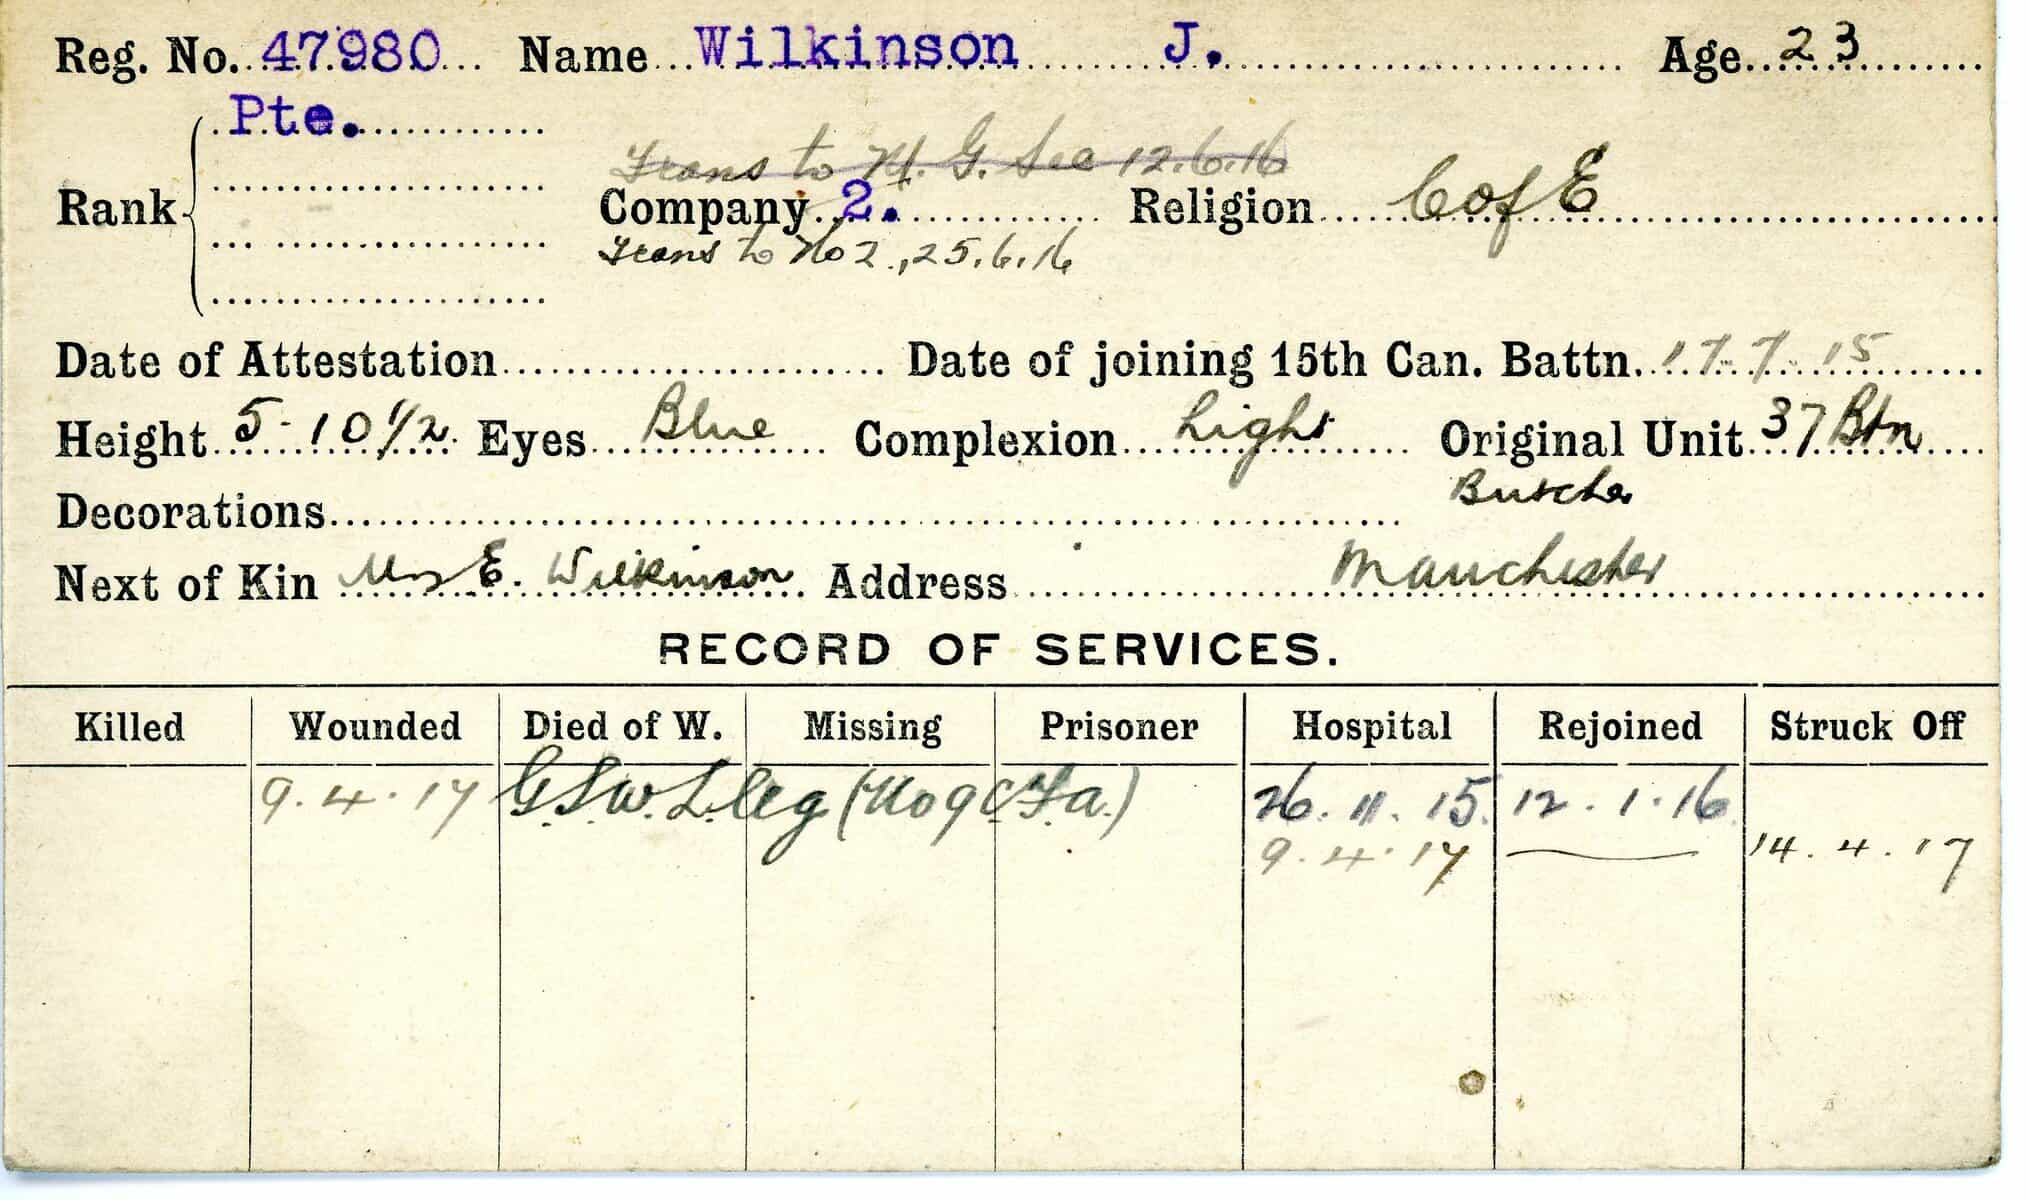 Reg. No. 47980 Name Wilkinson J. Age 23
Pte.
Trans to M. G. Sec 12.6.16
Rank Company 2. Religion C of E
Trans to No 2., 25.6.16
Date of Attestation Date of joining 15th Can. Battn. 17.7.15
Height 5-10 1/2 Eyes Blue Complexion Light Original Unit 37 Btn
Butcher
Decorations
Next of Kin Mrs E. Wilkinson Address Manchester
RECORD OF SERVICES.
Killed Wounded Died of W. Missing Prisoner Hospital Rejoined Struck Off
9.4.17 G.S.W. L. leg (No 9 C.F.a.) 26.11.15 12.1.16
9.4.17 14.4.17